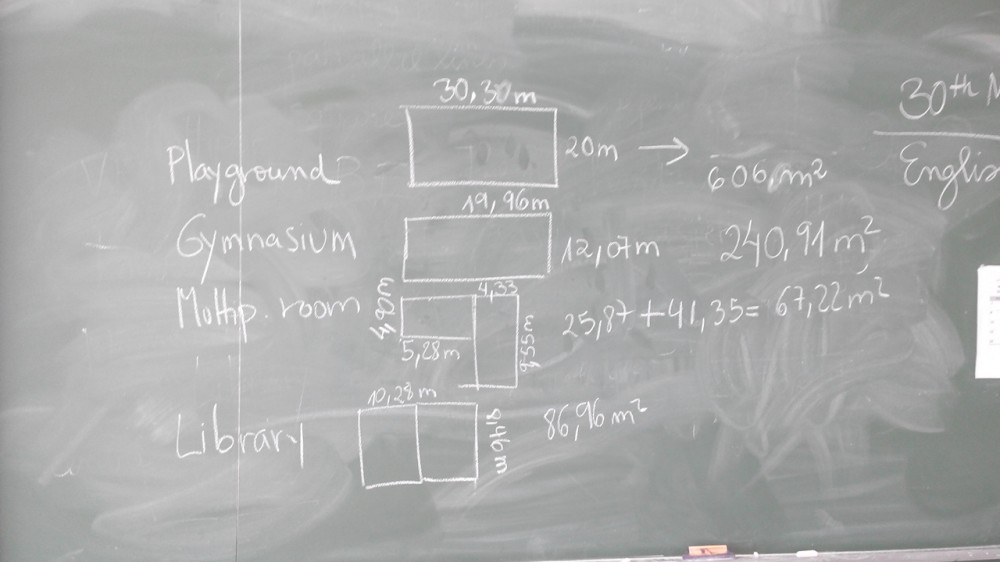 30,30m
Playground
20m → 606,m²
30th
English
19,96m
Gymnasium
12,07m
240,91m²
Multip. room
4,90m
4,33
5,28m
9,55m
25,87+41,35= 67,22m²
10,28m
Library
86,96m²